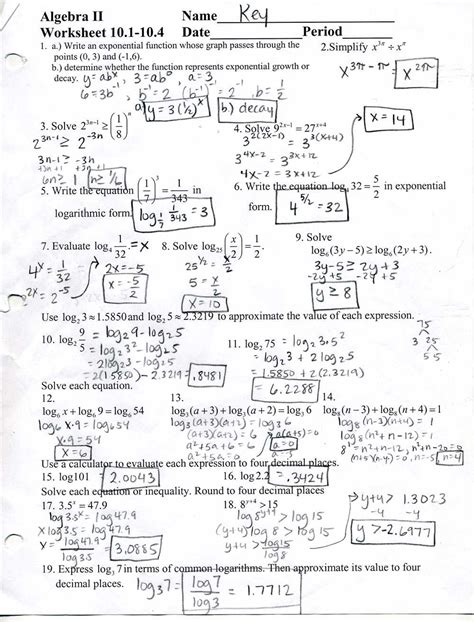 Algebra II Name Key
Worksheet 10.1-10.4 Date Period
1. a.) Write an exponential function whose graph passes through the points (0, 3) and (-1,6).
b.) determine whether the function represents exponential growth or decay. y=abˣ, 3=ab⁰, a=3
6=3b⁻¹ b⁻¹=2 (b⁻¹)⁻¹=2⁻¹, b=1/2
y=3(1/2)ˣ b) decay
2.Simplify x^(3π) ÷ x^π
x^(3π-π) = x^(2π)
3. Solve 2^(3n-1) ≥ (1/8)ⁿ
2^(3n-1) ≥ 2^(-3n)
3n-1 ≥ -3n
+3n +1 +3n +1
6n ≥ 1 n ≥ 1/6
4. Solve 9^(2x-1) = 27^(x+4)
3^(2(2x-1)) = 3^(3(x+4))
3^(4x-2) = 3^(3x+12)
4x-2 = 3x+12
x=14
5. Write the equation (1/7)³ = 1/343 in logarithmic form.
log_(1/7) 1/343 = 3
6. Write the equation log₄ 32 = 5/2 in exponential form.
4^(5/2) = 32
7. Evaluate log₄ 1/32 = x
4ˣ = 1/32
2x = 2⁻⁵
2x=-5
x = -5/2
8. Solve log₂₅ (x/2) = 1/2.
25^(1/2) = x/2
5 = x/2
x=10
9. Solve
log₆(3y-5) ≥ log₆(2y+3).
3y-5 ≥ 2y+3
-2y+5 -2y+5
y ≥ 8
Use log₂ 3 ≈ 1.5850 and log₂ 5 ≈ 2.3219 to approximate the value of each expression.
10. log₂ 9/5 = log₂9-log₂5
= log₂3²-log₂5
= 2log₂3-log₂5
= 2(1.5850)-2.3219 = .8481
11. log₂ 75 = log₂3·5²
= log₂3 + 2log₂5
= 1.5850 + 2(2.3219)
= 6.2288
75
3 25
5 5
Solve each equation.
12.
log₆ x + log₆ 9 = log₆ 54
log6 x·9 = log654
x·9=54
x=6
13.
log₃(a+3)+log₃(a+2)=log₃ 6
log₃(a+3)(a+2)=log₃6
(a+3)(a+2)=6
a²+5a+6=6
a²+5a=0
a(a+5)=0
a=0
14.
log₈(n-3)+log₈(n+4)=1
log₈(n-3)(n+4)=1
log₈(n²+n-12)=1
8¹=n²+n-12, n²+n-20=0
n=4
Use a calculator to evaluate each expression to four decimal places.
15. log101 = 2.0043 16. log2.2 = .3424
Solve each equation or inequality. Round to four decimal places
17. 3.5ˣ = 47.9
log3.5ˣ = log47.9
xlog3.5 = log47.9
x = log47.9/log3.5 = 3.0885
18. 8^(y+4) > 15
log8^(y+4) > log15
(y+4)log8 > log15
y+4 > log15/log8
y+4 > 1.3023
-4 -4
y > -2.6977
19. Express log₃ 7 in terms of common logarithms. Then approximate its value to four decimal places.
log₃7 = log7/log3 = 1.7712